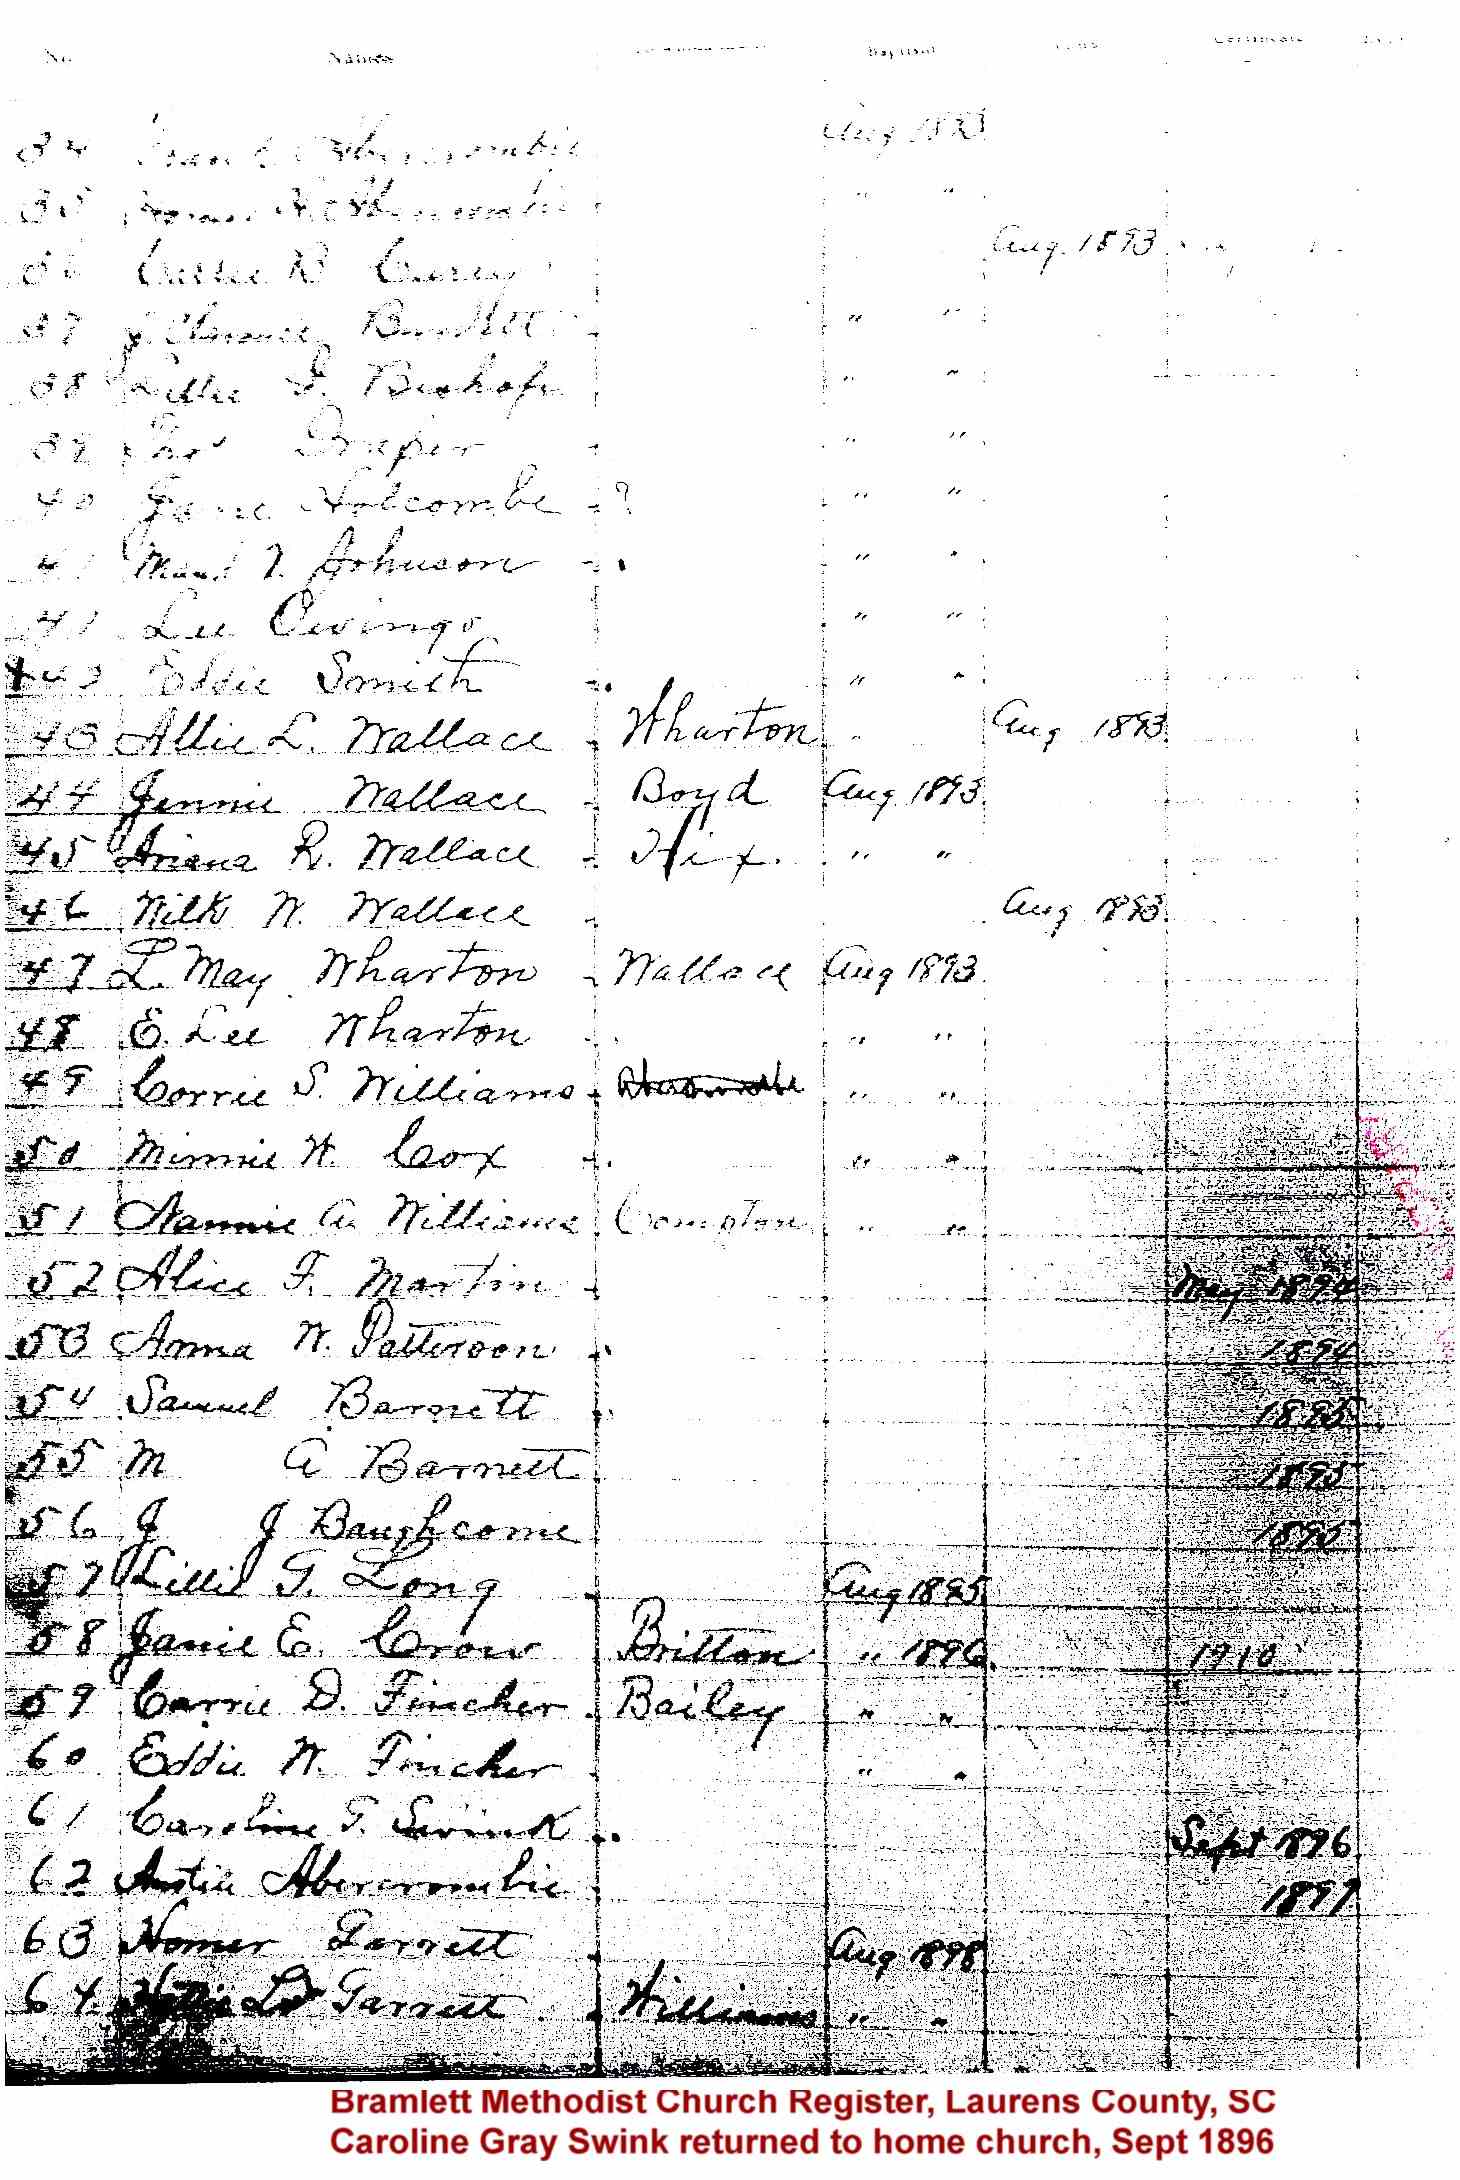 No. Names Baptism Certificate
34 Abercrombie Aug 1893
35 Abercrombie " "
36 Callie D Curry Aug. 1893
37 J. Clarence Burdett " "
38 Lillie I. Bishop " "
39 Draper " "
40 Janie Holcombe ? " "
41 Maud T. Johnson " "
41 Lee Owings " "
42 Eddie Smith " "
43 Allie L. Wallace Wharton " Aug 1893
44 Jennie Wallace Boyd Aug 1893
45 Ariana R. Wallace Hix. " "
46 Wilk W. Wallace Aug 1893
47 L. May Wharton Wallace Aug 1893
48 E. Lee Wharton " "
49 Corrie S. Williams Abercrombie " "
50 Minnie W. Cox " "
51 Nannie A. Williams Compton " "
52 Alice F. Martin May 1894
53 Anna W. Patterson 1894
54 Samuel Barnett 1895
55 M A Barnett 1895
56 J J Baughcome 1895
57 Lillie G. Long Aug 1895
58 Janie E. Crow Britton " 1896 1910
59 Carrie D. Fincher Bailey " "
60 Eddie W. Fincher " "
61 Caroline G. Swink Sept 1896
62 Austin Abercrombie 1897
63 Homer Garrett Aug 1898
64 Garrett Williams " "
Bramlett Methodist Church Register, Laurens County, SC
Caroline Gray Swink returned to home church, Sept 1896